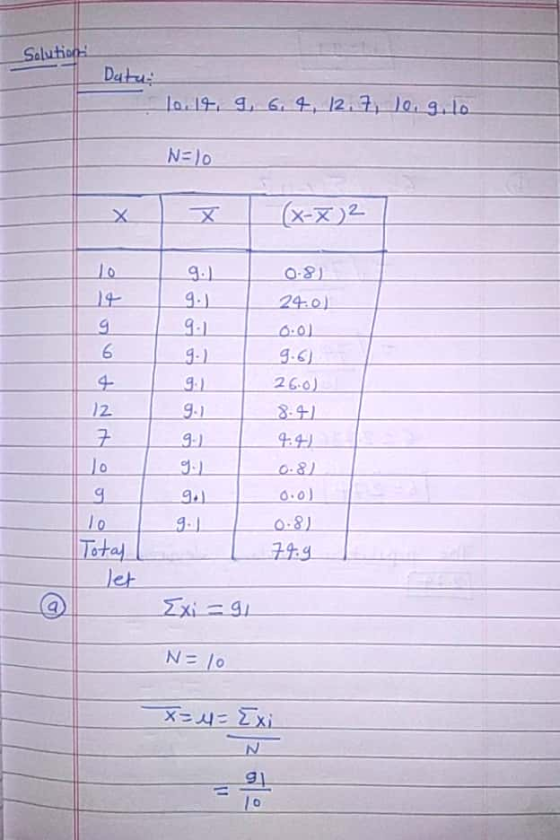 Solution:
Data:
10, 14, 9, 6, 4, 12, 7, 10, 9, 10
N=10
X x̄ (x-x̄)²
10 9.1 0.81
14 9.1 24.01
9 9.1 0.01
6 9.1 9.61
4 9.1 26.01
12 9.1 8.41
7 9.1 4.41
10 9.1 0.81
9 9.1 0.01
10 9.1 0.81
Total 74.9
let
(a) Σxi = 91
N = 10
x̄ = μ = Σxi / N
= 91 / 10